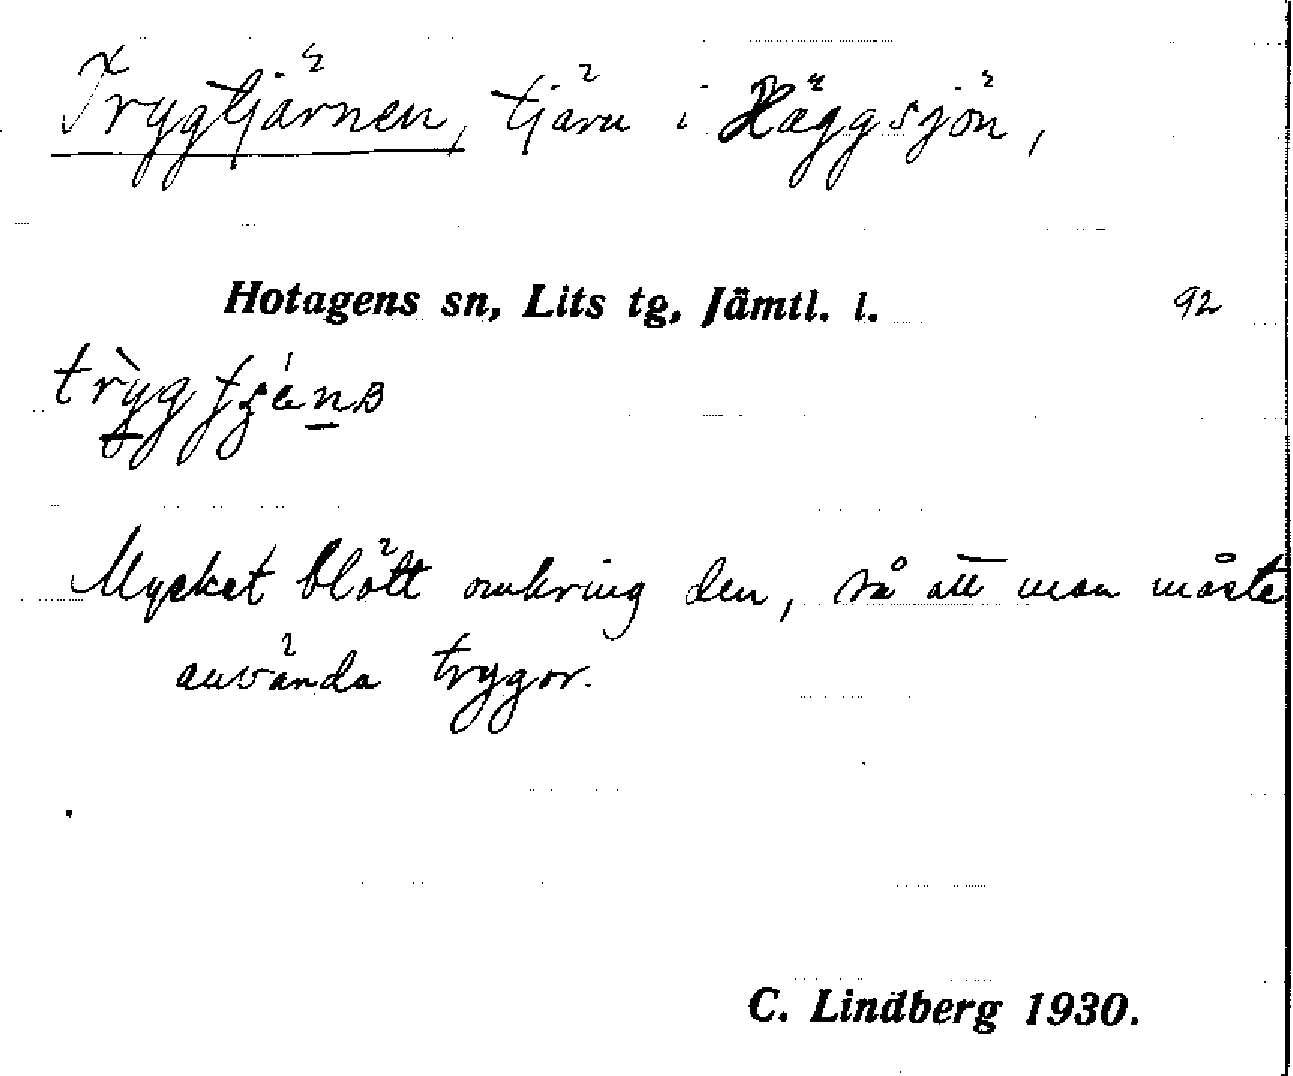 Trygtjärnen, tjärn i Häggsjön,
Hotagens sn, Lits tg, Jämtl. l. 92
Mycket blött omkring den, så att man måste
använda trygor.
C. Lindberg 1930.